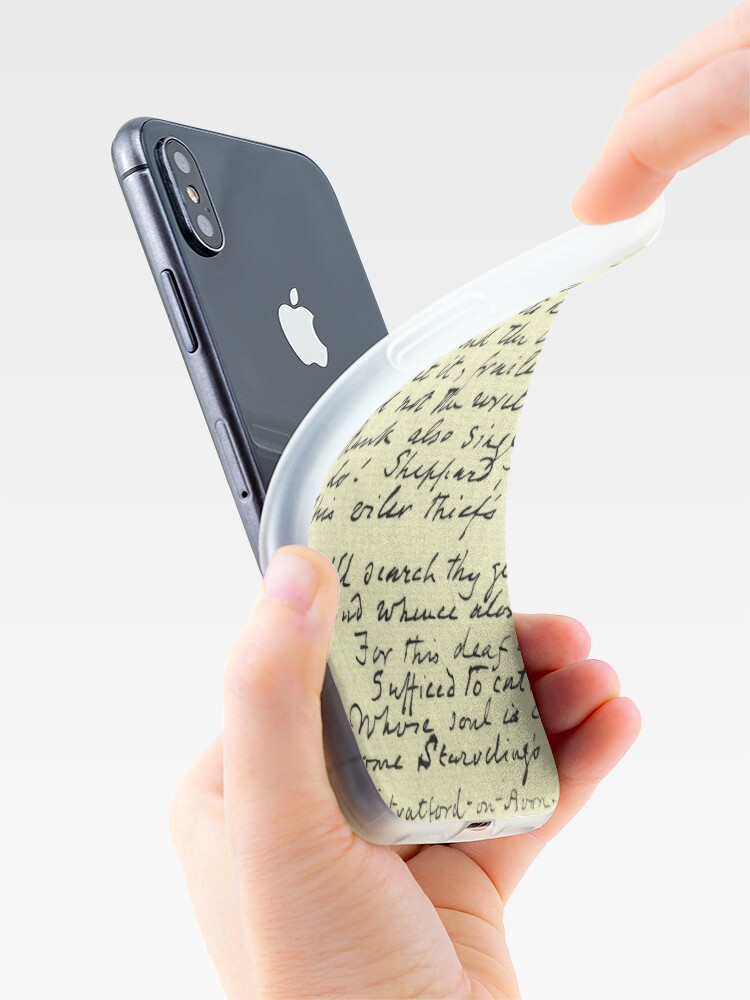 nd the
t it, frailer
not the wretch
ank also sing
Lo! Sheppard,
his viler thief's
'll search thy gl
nd whence alon
For this deaf
Sufficed to cat
Whose soul is c
ome Starveling's
Stratford-on-Avon.